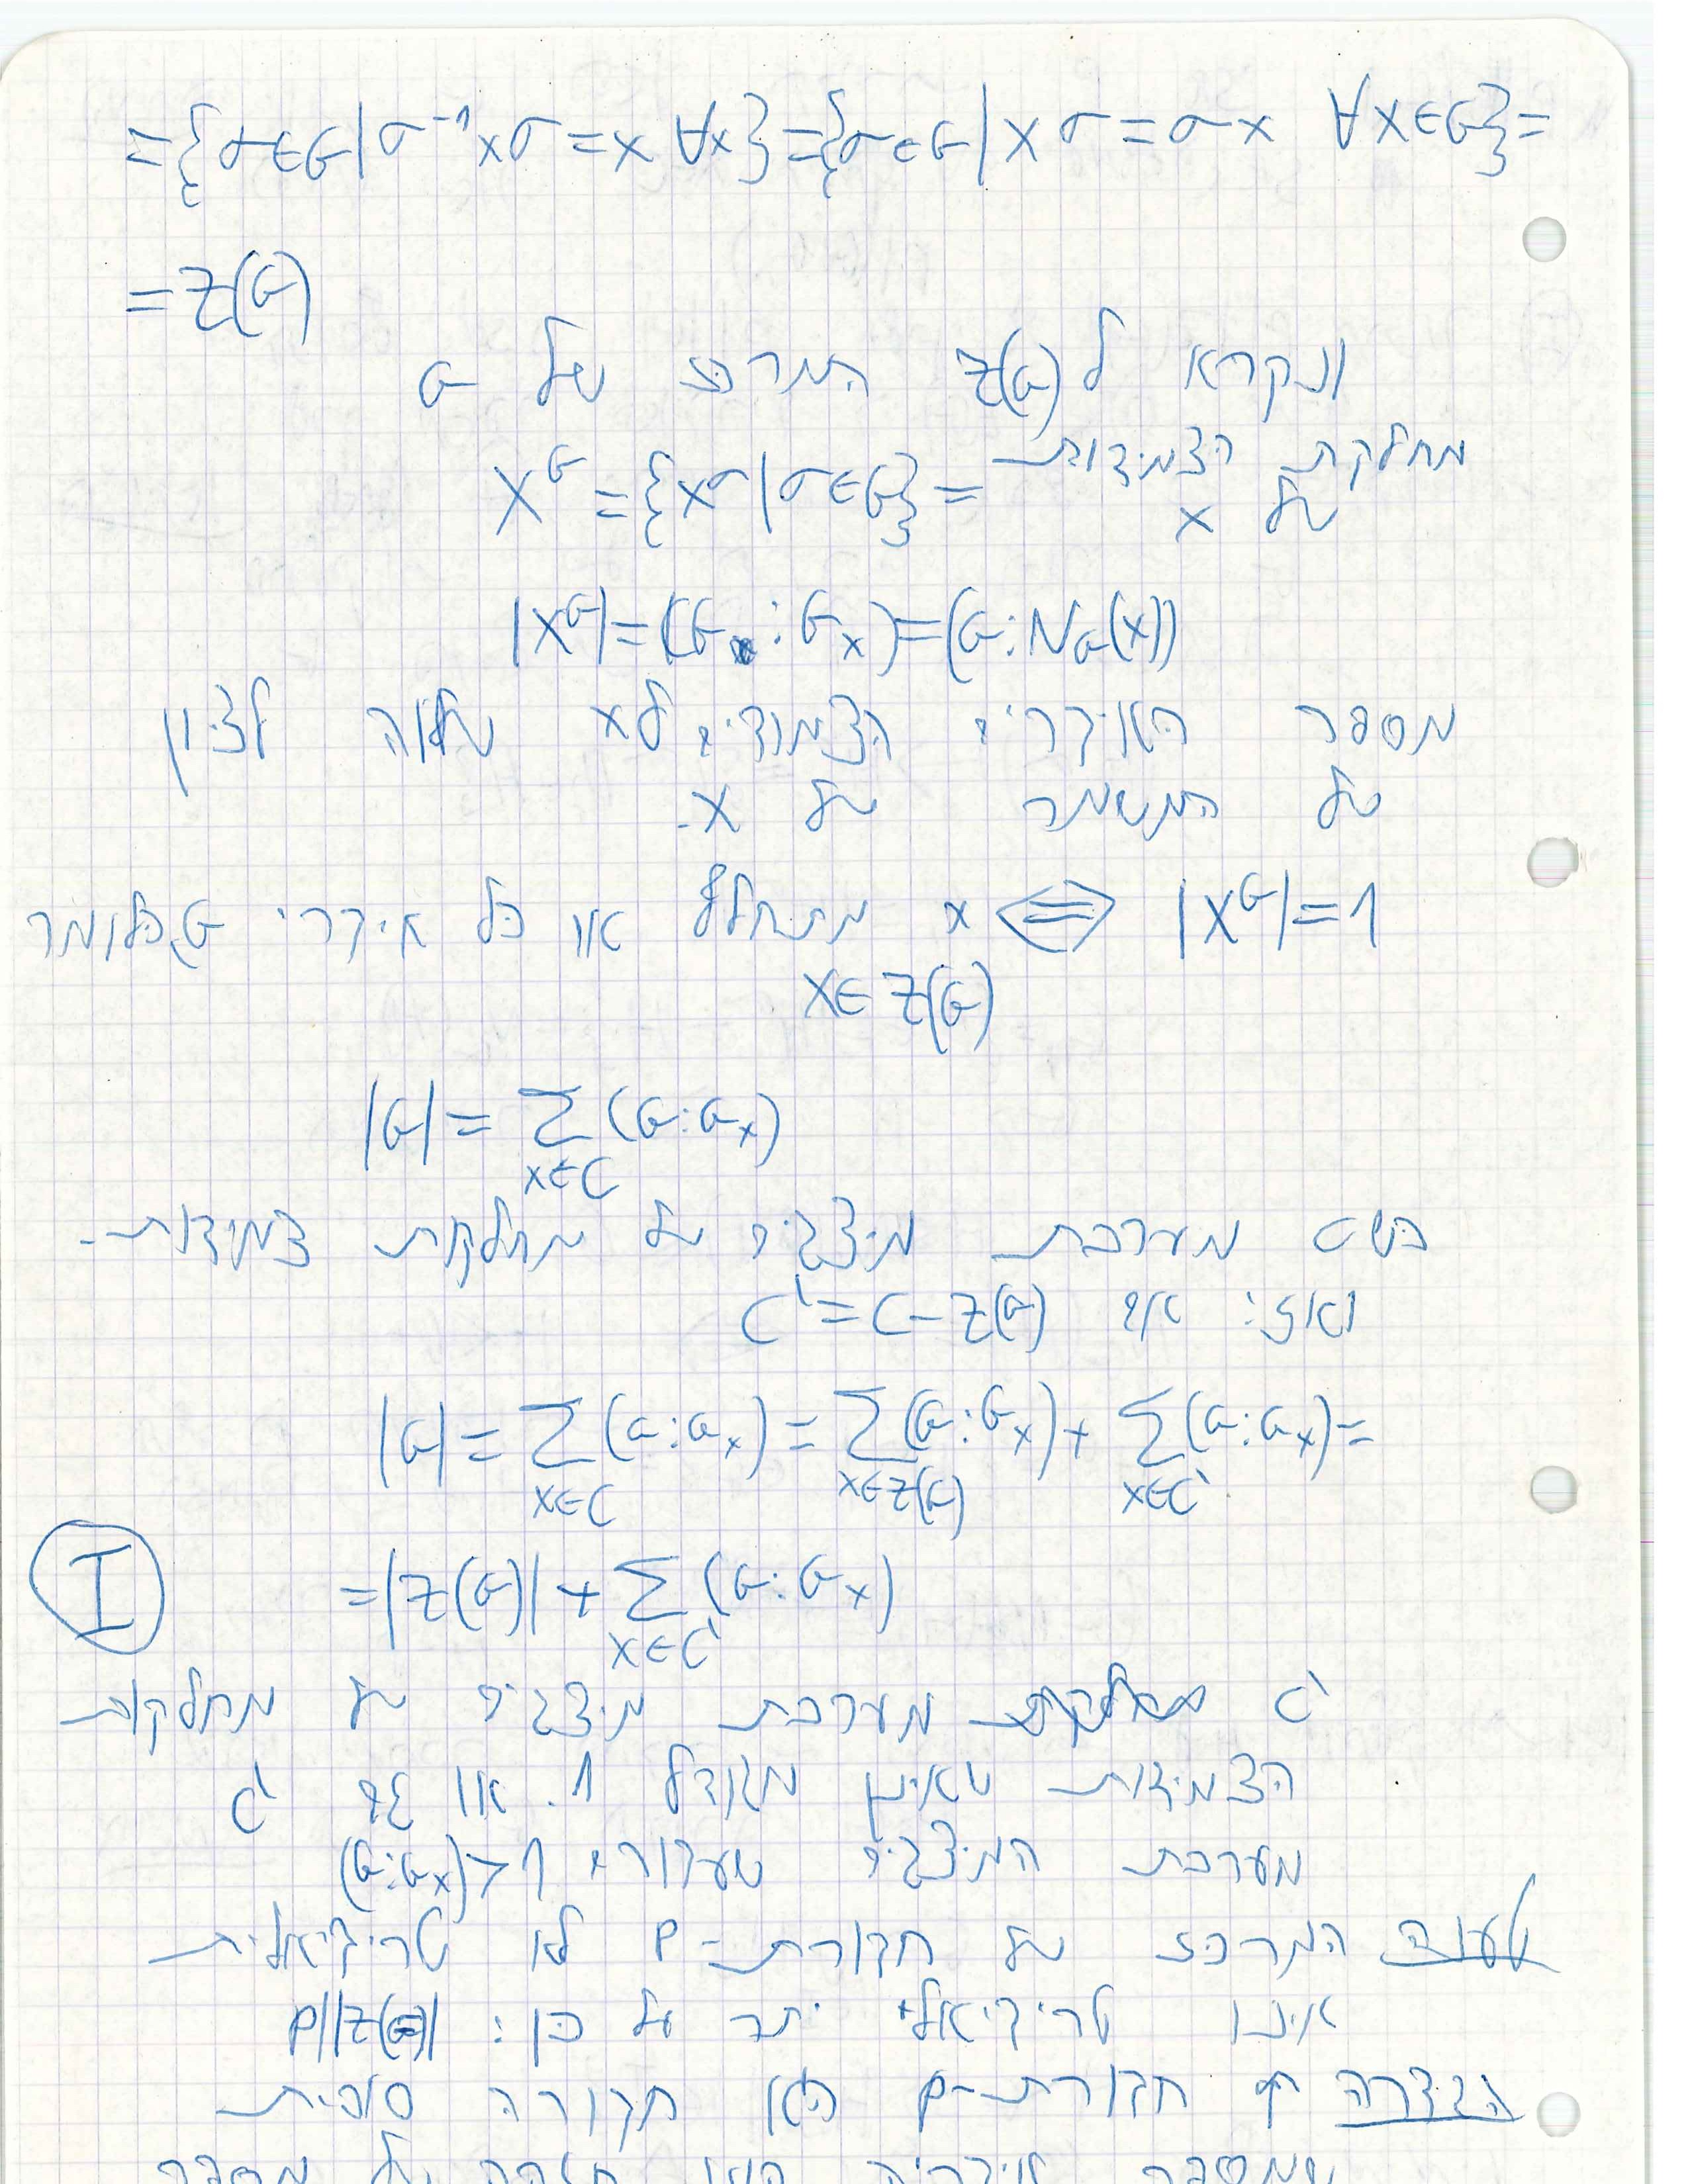 ={σ∈G|σ⁻¹xσ=x ∀x}={σ∈G|xσ=σx ∀x∈G}=
=Z(G)
ונקרא ל Z(G) המרכז של G
מחלקת הצמידות של x = {x^σ|σ∈G} = x^G
|x^G|=(G:G_x)=(G:N_G(x))
מספר האיברים הצמודים לx שווה לציון
של המשמר של x.
|x^G|=1 ⟺ x מתחלף עם כל איברי G, כלומר
x∈Z(G)
|G|=∑_{x∈C}(G:G_x)
כשC מערכת מיצגים של מחלקת צמידות.
ואז: אם C'=C-Z(G)
|G|=∑_{x∈C}(G:G_x)=∑_{x∈Z(G)}(G:G_x)+∑_{x∈C'}(G:G_x)=
=|Z(G)|+∑_{x∈C'}(G:G_x) I
C' מערכת מיצגים של מחלקות
הצמידות שאינן מגודל 1. או גם C'
מערכת המיצגים שעבורם (G:G_x)>1
טענה המרכז של חבורת-p לא טריויאלית
אינו טריויאלי יתר על כן: p||Z(G)|
הגדרה חבורת-p היא חבורה סופית
שמספר איבריה הוא חזקה של מספר